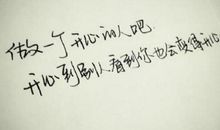 做一个开心的人吧
开心到别人看到你也会变得开心